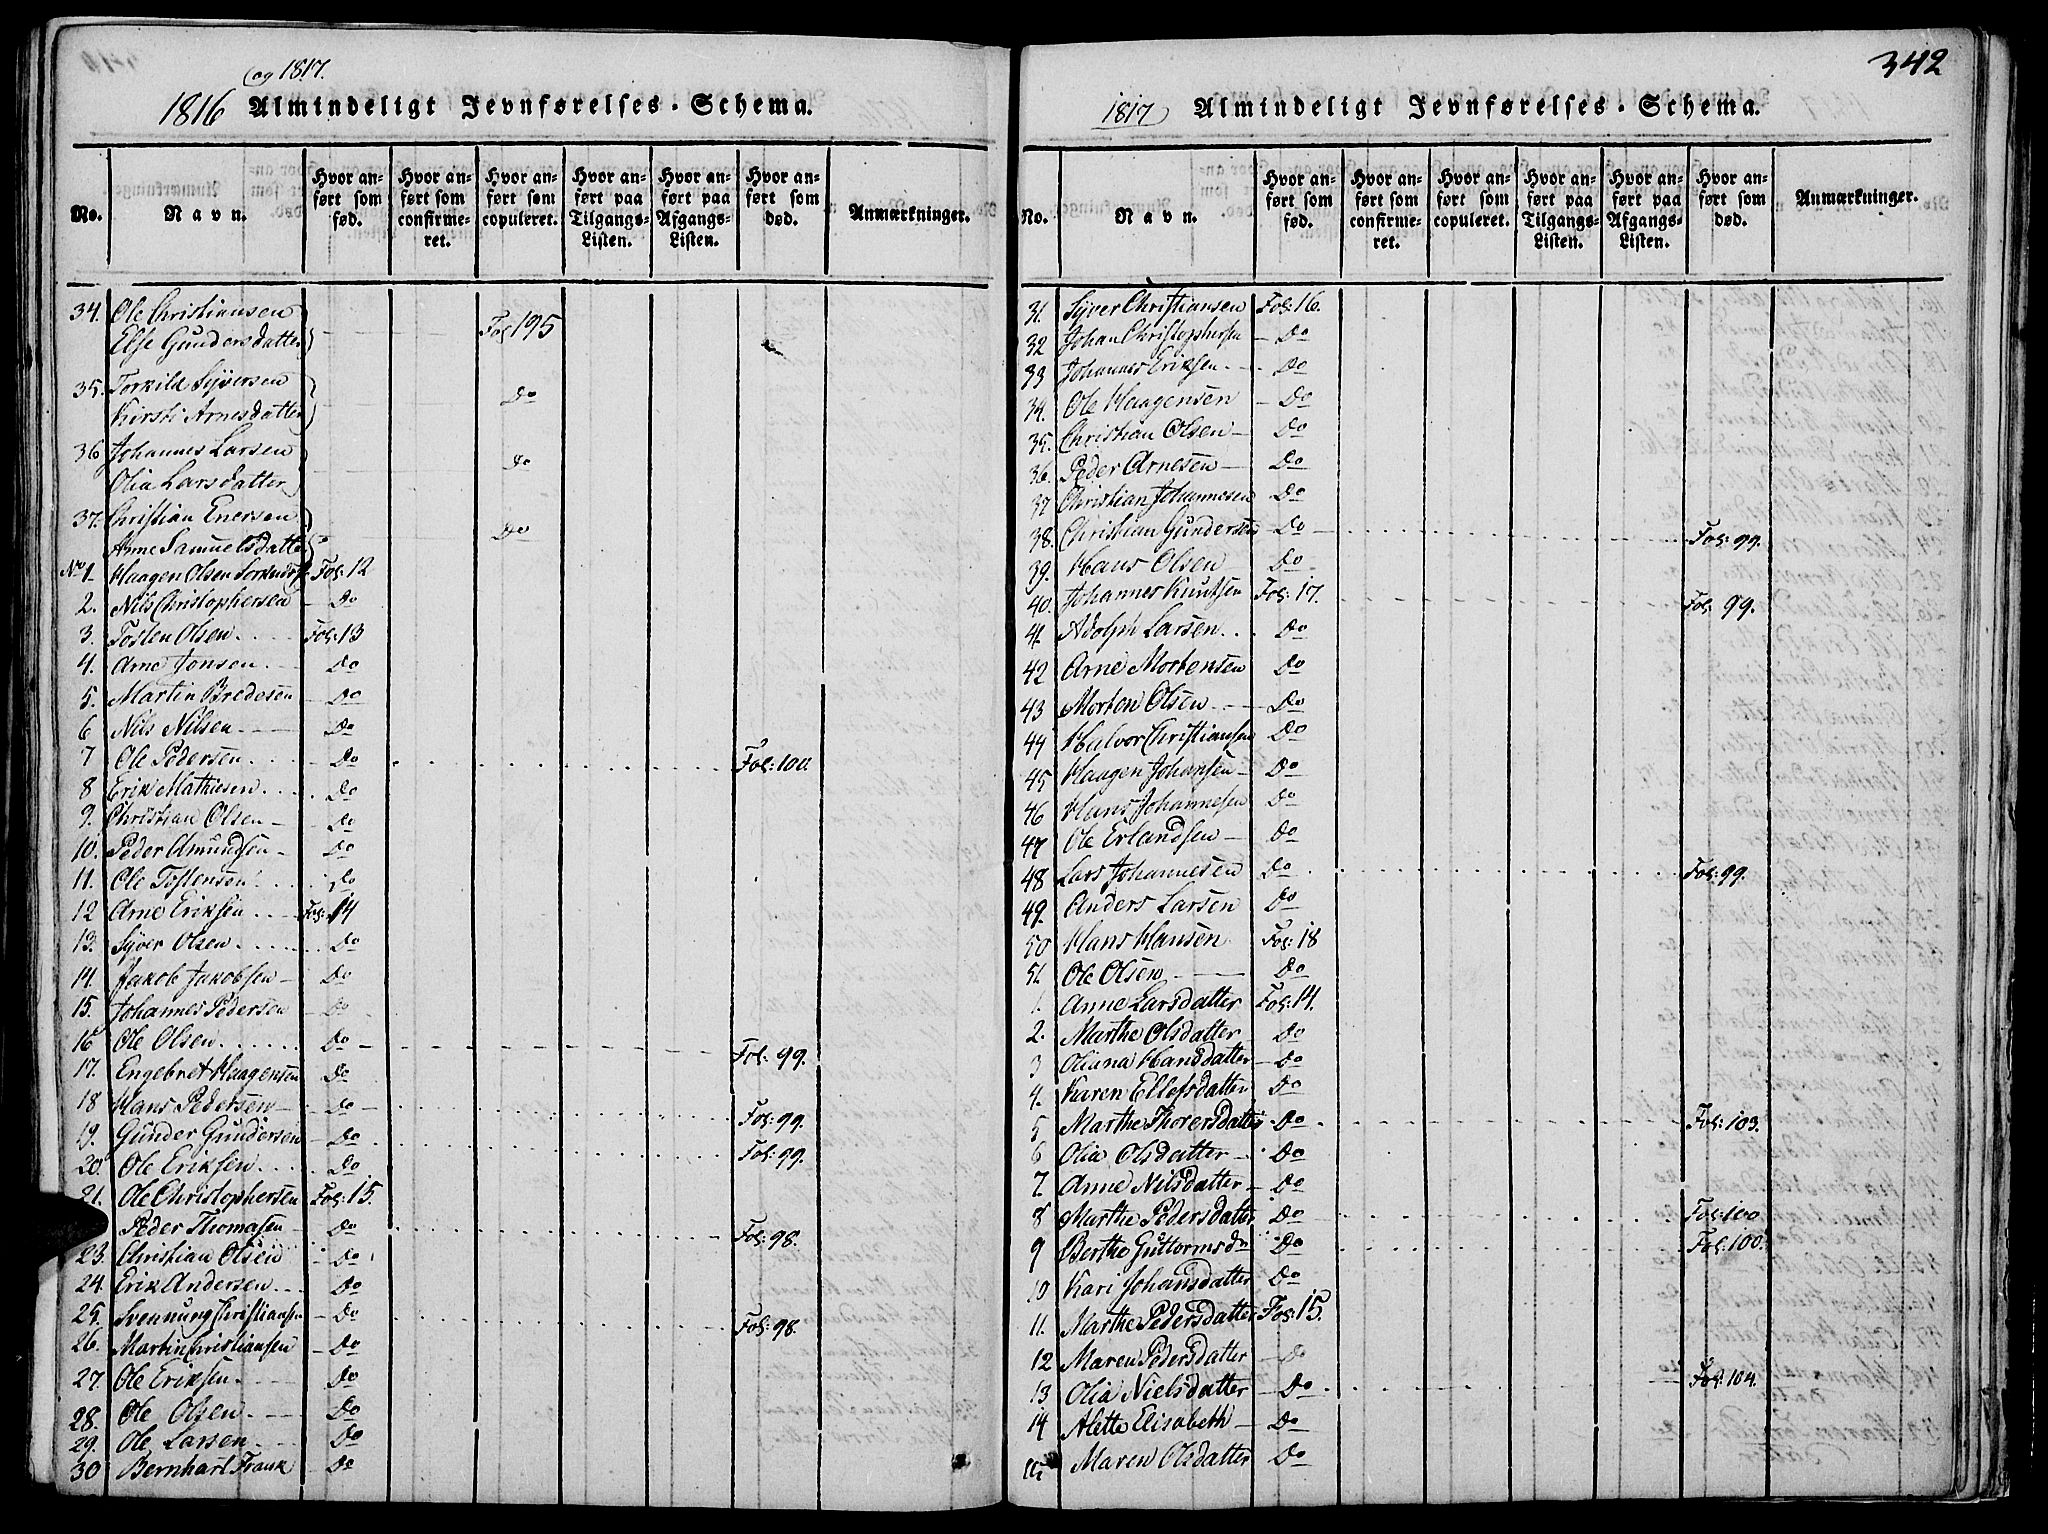 og 1817.
1816 Almindeligt Jevnførelses-Schema.
No. Navn. Hvor anført som fød. Hvor anført som confirmeret. Hvor anført som copuleret. Hvor anført paa Tilgangs-Listen. Hvor anført paa Afgangs-Listen. Hvor anført som død. Anmærkninger.
34. Ole Christiansen
Else Gundersdatter Fol 195
35. Torkild Syversen
Kirsti Arnesdatter Do
36 Johannes Larsen
Olia Larsdatter Do
37. Christian Enersen
Anne Samuelsdatter Do
No 1 Haagen Olsen Fol: 12
2. Nils Christophersen Do
3. Tosten Olsen Fol: 13
4. Arne Jonsen Do
5. Martin Bredesen Do
6 Nils Nilsen Do
7 Ole Pedersen Do Fol: 100.
8 Erik Mathiesen Do
9. Christian Olsen Do
10. Peder Amundsen Do
11. Ole Tostensen Do
12 Arne Eriksen Fol: 14
13. Syver Olsen Do
14. Jakob Jakobsen Do
15. Johannes Pedersen Do
16 Ole Olsen Do Fol: 99.
17. Engebret Haagensen Do
18 Hans Pedersen Do Fol: 99.
19. Gunder Gundersen Do Fol: 99.
20. Ole Eriksen Do
21. Ole Christophersen Fol: 15.
Peder Thomasen Do Fol: 98.
23. Christian Olsen Do
24. Erik Andersen Do
25. Svennung Christiansen Do Fol: 98.
26. Martin Christiansen Do
27. Ole Eriksen Do
28. Ole Olsen Do
29. Ole Larsen Do
30 Bernhart Frank Do
342
1817 Almindeligt Jevnførelses-Schema.
No. Navn. Hvor anført som fød. Hvor anført som confirmeret. Hvor anført som copuleret. Hvor anført paa Tilgangs-Listen. Hvor anført paa Afgangs-Listen. Hvor anført som død. Anmærkninger.
31. Syver Christiansen Fol: 16.
32 Johan Christophersen Do
33 Johannes Eriksen Do
34. Ole Haagensen Do
35. Christian Olsen Do
36. Peder Arnesen Do
37 Christian Johannesen Do
38. Christian Gundersen Do Fol: 99.
39. Hans Olsen Do
40. Johannes Knutsen Fol: 17. Fol: 99.
41. Adolph Larsen Do
42 Arne Mortensen Do
43 Morten Olsen Do
44 Halvor Christiansen Do
45 Haagen Johansen Do
46 Hans Johannesen Do
47 Ole Erlandsen Do
48 Lars Johannesen Do Fol: 99.
49. Anders Larsen Do
50 Hans Hansen Fol: 18
51. Ole Olsen Do
1. Anne Larsdatter Fol: 14.
2. Marthe Olsdatter Do
3 Oliana Hansdatter Do
4. Karen Ellefsdatter Do
5 Marthe Thorersdatter Do Fol: 103.
6 Olia Olsdatter Do
7. Anne Nilsdatter Do
8 Marthe Pedersdatter Do Fol: 100
9 Berthe Guttormsdr Do Fol: 100.
10 Kari Johansdatter Do
11. Marthe Pedersdatter Fol: 15.
12 Maren Pedersdatter Do
13 Olia Nielsdatter Do Fol: 104.
14 Alette Elisabeth Do
Maren Olsdatter Do